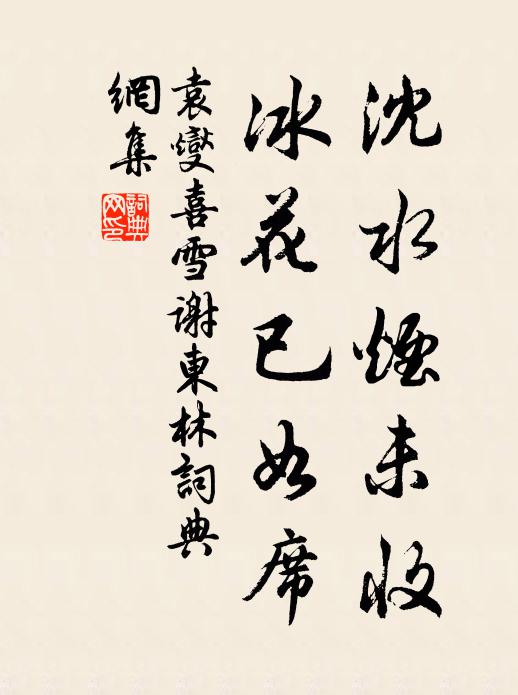 沈水煙未收
冰花已如席
袁燮喜雪謝東林詞典
網集
詞典
网印